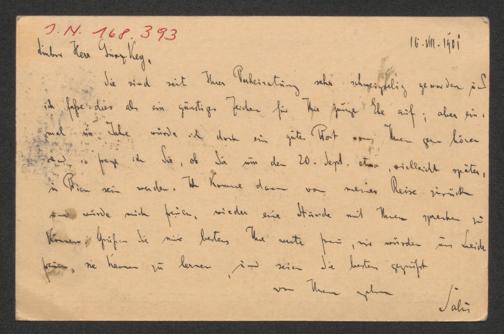 J.N. 168.393
16. VIII. 1901
Lieber Herr
Sie sind seit Ihrer Verheiratung sehr schweigselig geworden und
ich fasse dies als ein günstiges Zeichen für Ihre junge Ehe auf; aber ein-
mal im Jahre würde ich doch ein gutes Wort von Ihnen gern hören
und so frage ich Sie, ob Sie um den 20. Sept. etwa, vielleicht später,
in Wien sein werden. Ich komme dann von meiner Reise zurück
und würde mich freuen, wieder eine Stunde mit Ihnen sprechen zu
können. Grüßen Sie mir bestens Ihre werte Frau, wir würden uns beide
freuen, sie kennen zu lernen, und seien Sie bestens gegrüßt
von Ihrem
Salus